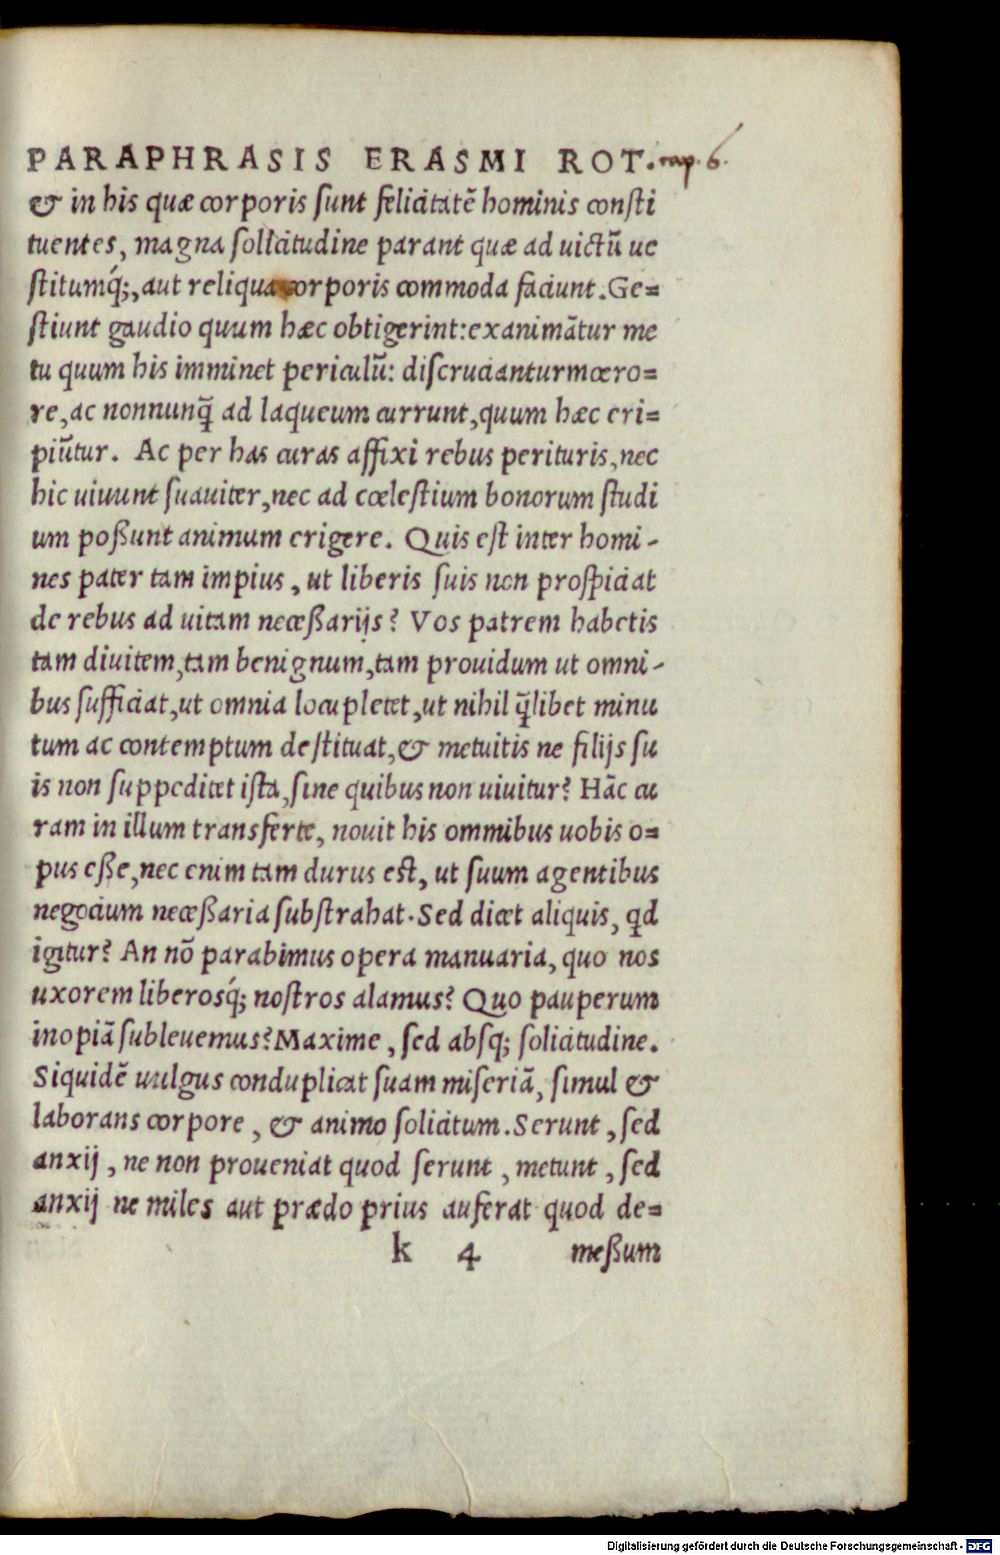 PARAPHRASIS ERASMI ROT. cap. 6.
& in his quæ corporis sunt felicitatẽ hominis consti
tuentes, magna sollicitudine parant quæ ad uictũ ue
stitumq́;, aut reliqua corporis commoda faciunt. Ge=
stiunt gaudio quum hæc obtigerint: exanimãtur me
tu quum his imminet periculũ: discrucianturmœro=
re, ac nonnunq̃ ad laqueum currunt, quum hæc eri=
piũtur. Ac per has curas affixi rebus perituris, nec
hic uiuunt suauiter, nec ad cœlestium bonorum studi
um poßunt animum erigere. Quis est inter homi-
nes pater tam impius, ut liberis suis non prospiciat
de rebus ad uitam neceßarijs? Vos patrem habetis
tam diuitem, tam benignum, tam prouidum ut omni-
bus sufficiat, ut omnia locupletet, ut nihil q̃libet minu
tum ac contemptum destituat, & metuitis ne filijs su
is non suppeditet ista, sine quibus non uiuitur? Hãc cu
ram in illum transferte, nouit his omnibus uobis o=
pus eße, nec enim tam durus est, ut suum agentibus
negocium neceßaria substrahat. Sed dicet aliquis, qd
igitur? An nõ parabimus opera manuaria, quo nos
uxorem liberosq́; nostros alamus? Quo pauperum
inopiã subleuemus? Maxime, sed absq; solicitudine.
Siquidẽ uulgus conduplicat suam miseriã, simul &
laborans corpore, & animo solicitum. Serunt, sed
anxij, ne non proueniat quod serunt, metunt, sed
anxij ne miles aut prædo prius auferat quod de=
k 4 meßum
Digitalisierung gefördert durch die Deutsche Forschungsgemeinschaft - DFG